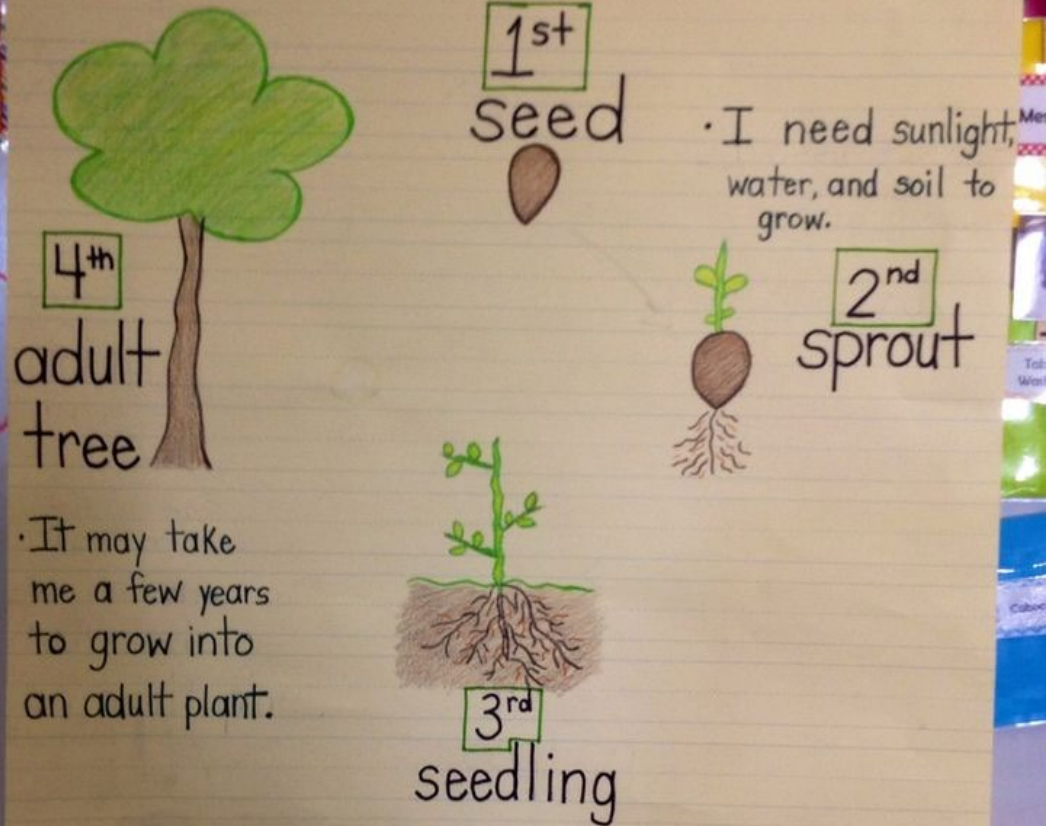 1st
seed
· I need sunlight,
water, and soil to
grow.
2nd
sprout
3rd
seedling
4th
adult
tree
· It may take
me a few years
to grow into
an adult plant.